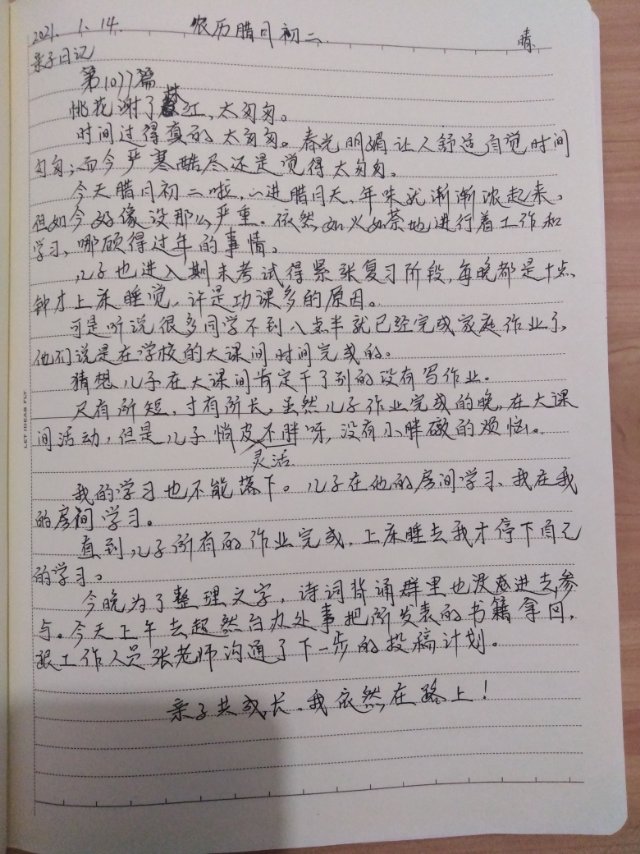 2021. 1. 14. 农历腊月初二 晴.
亲子日记
第1077篇
桃花谢了春红，太匆匆。
时间过得真的太匆匆。春光明媚让人舒适自觉时间
匆匆；而今严寒酷尽还是觉得太匆匆。
今天腊月初二啦，一进腊月天，年味就渐渐浓起来，
但如今好像没那么严重。依然如火如荼地进行着工作和
学习，哪顾得过年的事情。
儿子也进入期末考试得紧张复习阶段，每晚都是十点
钟才上床睡觉，许是功课多的原因。
可是听说很多同学不到八点半就已经完成家庭作业了，
他们说是在学校的大课间时间完成的。
猜想儿子在大课间肯定干了别的没有写作业。
尺有所短，寸有所长，虽然儿子作业完成的晚，在大课
间活动，但是儿子悄皮不胖呀，没有小胖墩的烦恼。
灵活
我的学习也不能落下。儿子在他的房间学习、我在我
的房间学习。
直到儿子所有的作业完成，上床睡去我才停下自己
的学习。
今晚为了整理文字，诗词背诵群里也没有进去参
与。今天上午去超然台办处事把所发表的书籍拿回，
跟工作人员张老师沟通了下一步的投稿计划。
亲子共成长，我依然在路上！
LET IDEAS FLY